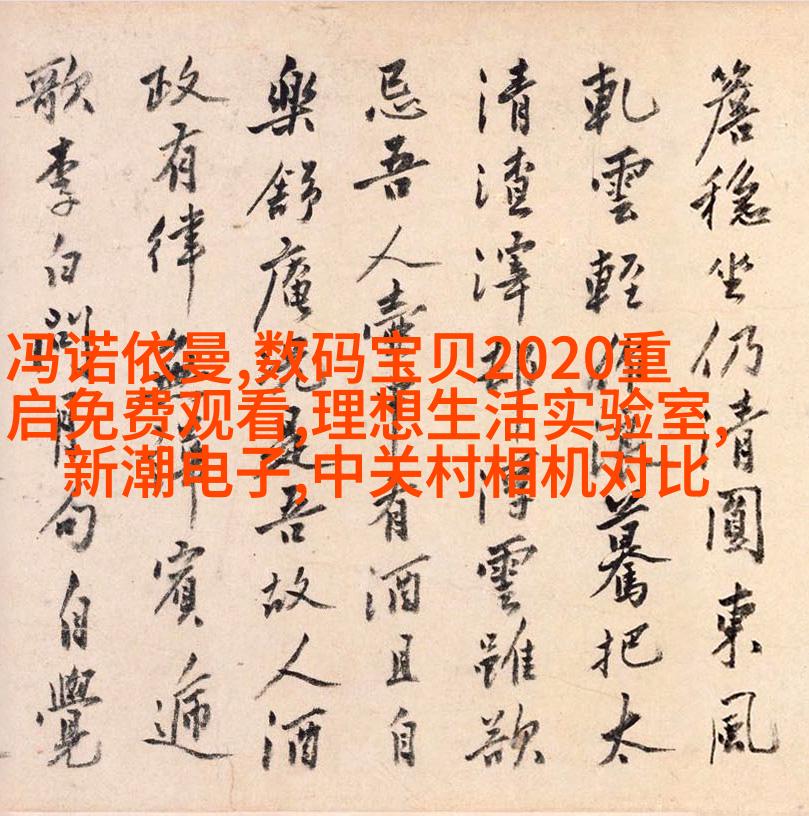 簷稳坐仍清圓東風
軋雲輕把太
清渣澤雲雖欲
忌吾人有酒且自
樂舒庵是吾故人酒
政有律賓遞
歌李白句自覺
冯诺依曼,数码宝贝2020重
启免费观看,理想生活实验室,
新潮电子,中关村相机对比